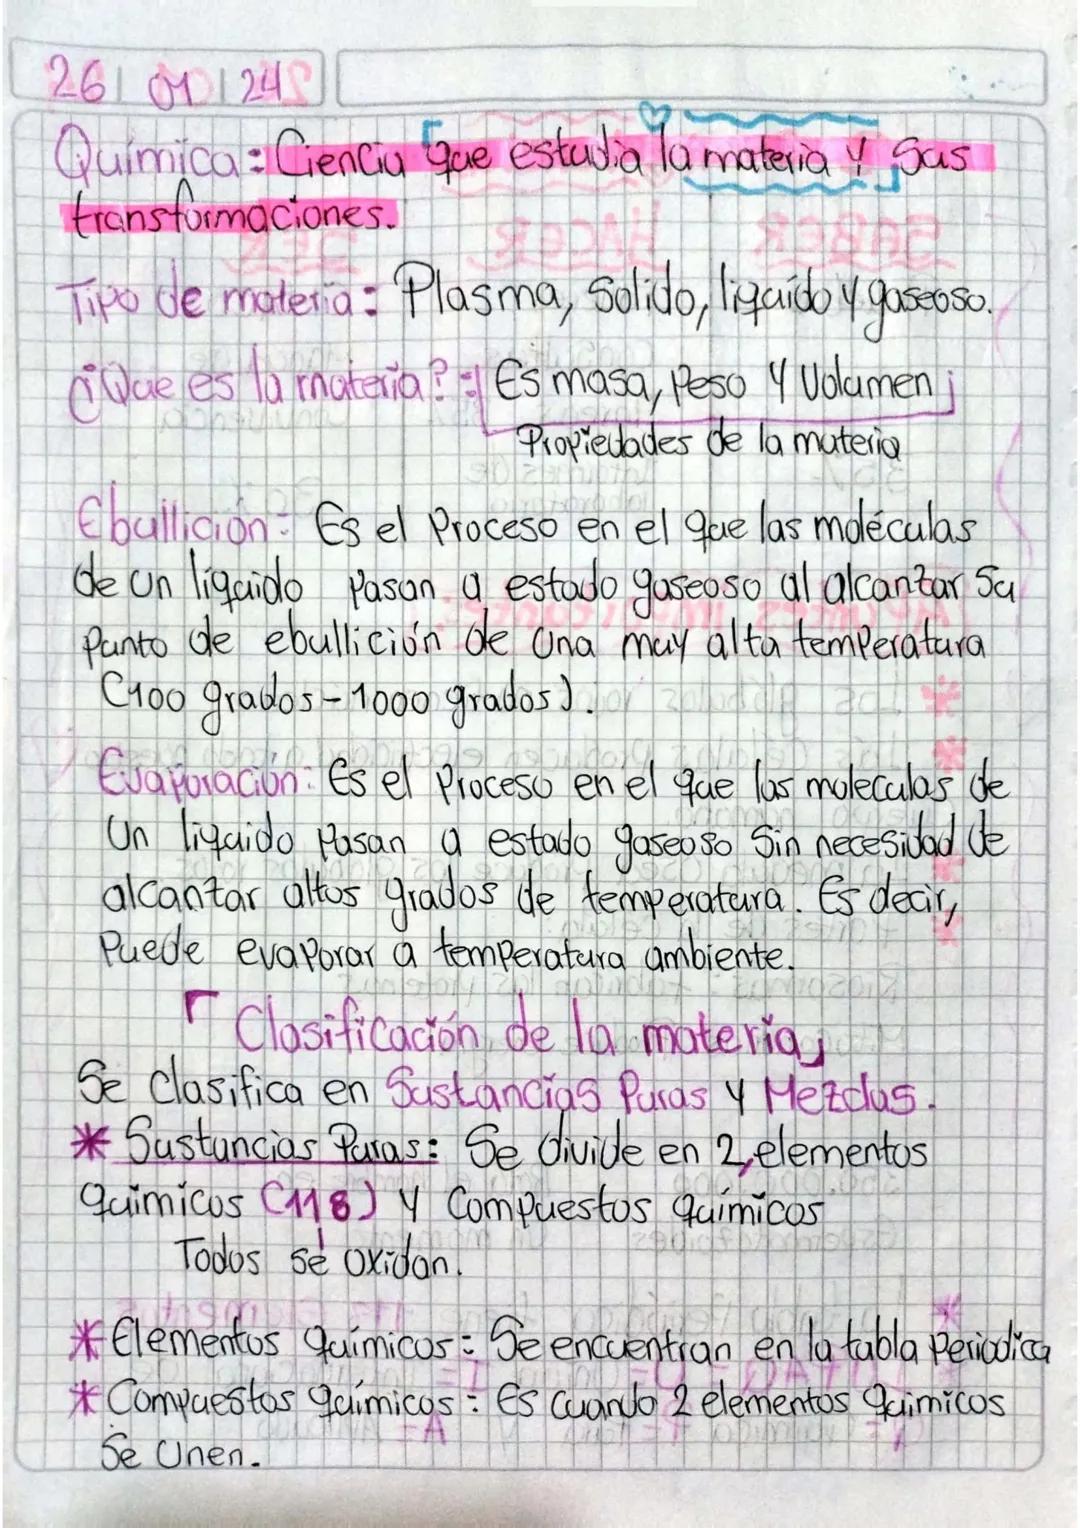 26 01 24
Química: Ciencia que estudia la materia y sus
transformaciones.
Tipo de materia: Plasma, Solido, liquído y gaseoso.
¿Que es la materia?: Es masa, Peso y Volumen
Propiedades de la materia
Ebullición: Es el Proceso en el que las moléculas
de un líquido Pasan a estado gaseoso al alcanzar su
punto de ebullición de una muy alta temperatura
(100 grados - 1000 grados).
Evaporación: Es el Proceso en el que las moleculas de
Un liquido Pasan a estado gaseoso Sin necesidad de
alcanzar altos grados de temperatura. Es decir,
Puede evaporar a temperatura ambiente.
Clasificación de la materia
Se Clasifica en Sustancias Puras y Mezclas.
* Sustancias Puras: Se divide en 2, elementos
químicos (118) y Compuestos químicos
Todos se oxidan.
* Elementos químicos: Se encuentran en la tabla Periodica
* Compuestos químicos: Es Cuando 2 elementos Químicos
Se Unen.